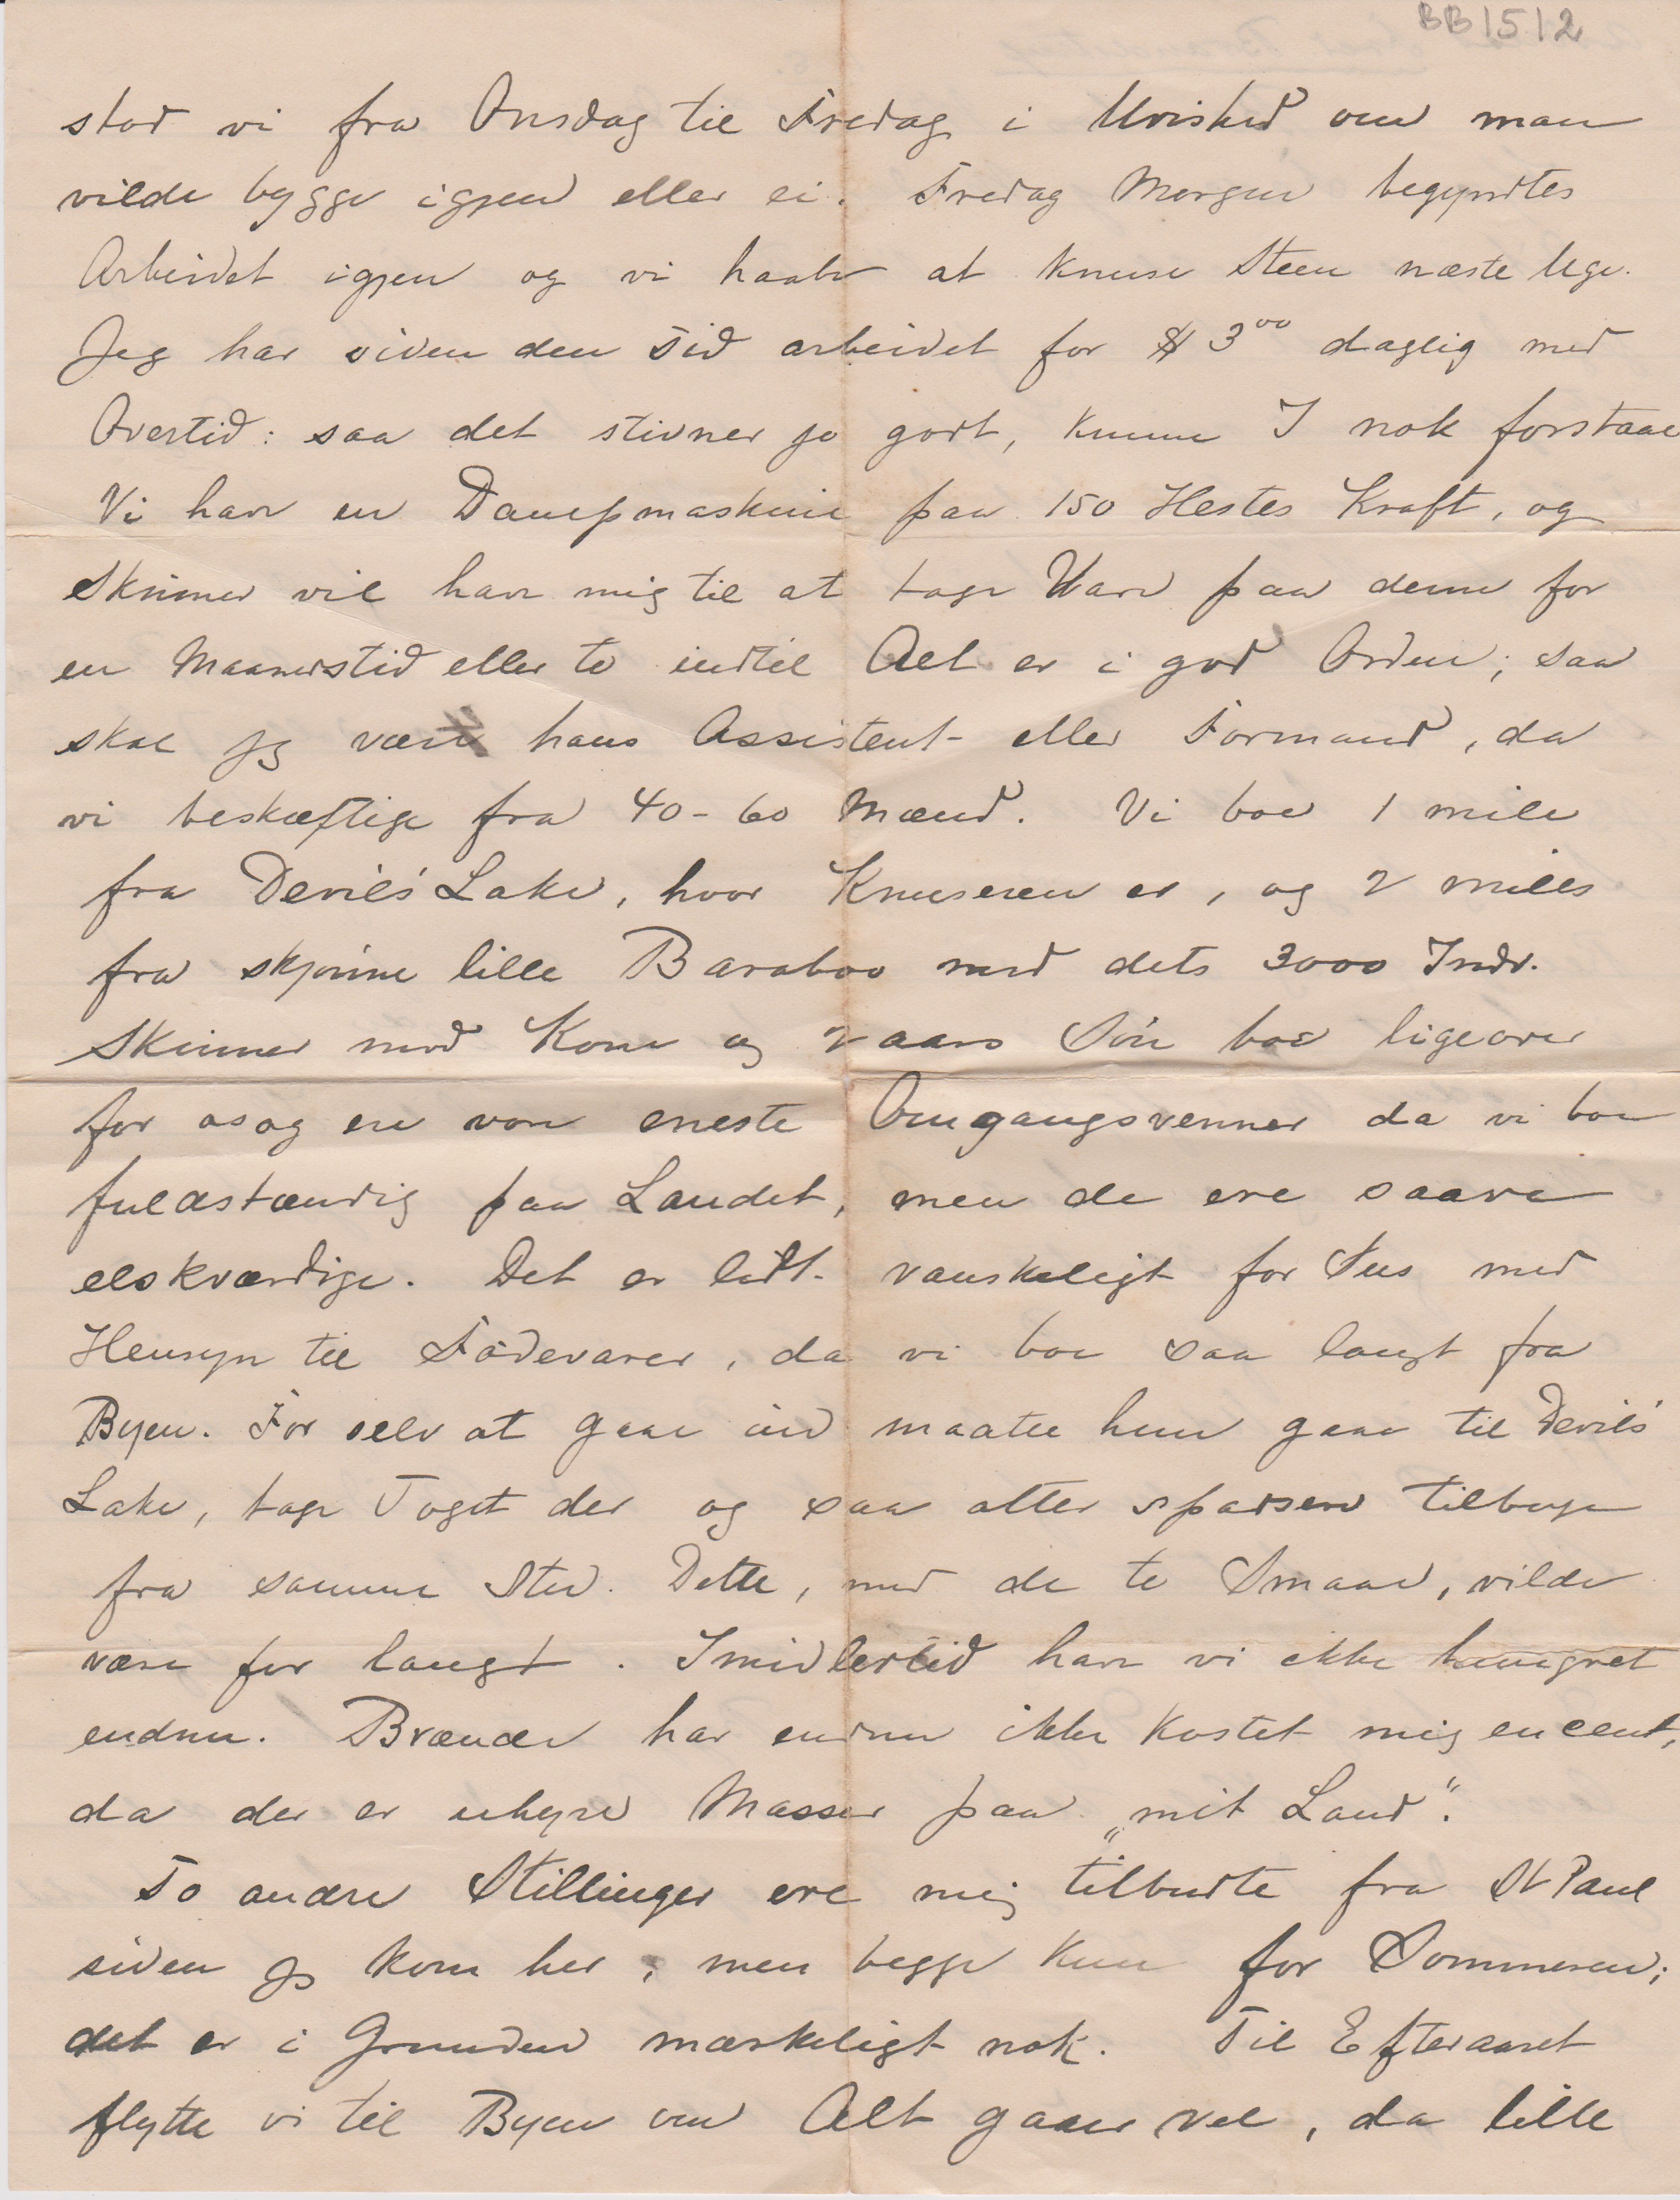 BB1512
stod vi fra Onsdag til Fredag i Uvished om man
vilde bygge igjen eller ei. Fredag Morgen begyndtes
Arbeidet igjen og vi haabe at knuse Steen næste Uge.
Jeg har siden den Tid arbeidet for $ 3⁰⁰ daglig med
Overtid: saa det stivner jo godt, kunne I nok forstaae
Vi have en Dampmaskine paa 150 Hestes Kraft, og
Skinner vil have mig til at tage Vare paa denne for
en Maanedstid eller to indtil Alt er i god Orden; saa
skal jeg være hans Assistent eller Formand, da
vi beskæftige fra 40-60 Mænd. Vi boe 1 mile
fra Devils' Lake, hvor Knuseren er, og 2 miles
fra skjønne lille Baraboo med dets 3000 Indv.
Skinner med Kone og 2 aars Søn boe ligeover
for os og ere vore eneste Omgangsvenner da vi boe
fuldstændig paa Landet, men de ere saare
elskværdige. Det er lidt vanskeligt for Sus med
Hensyn til Fødevarer, da vi boe saa langt fra
Byen. For selv at gaae ind maatte hun gaae til Devils'
Lake, tage Toget der og saa atter spadsere tilbage
fra samme Sted. Dette, med de to Smaae, vilde
være for langt. Imidlertid have vi ikke hungret
endnu. Brænde har endnu ikke kostet mig en cent,
da der er uhyre Masser paa „mit Land".
To andre Stillinger ere mig tilbudte fra St Paul
siden jeg kom her, men begge kun for Sommeren;
det er i Grunden mærkeligt nok. Til Efteraaret
flytte vi til Byen om Alt gaaer vel, da lille